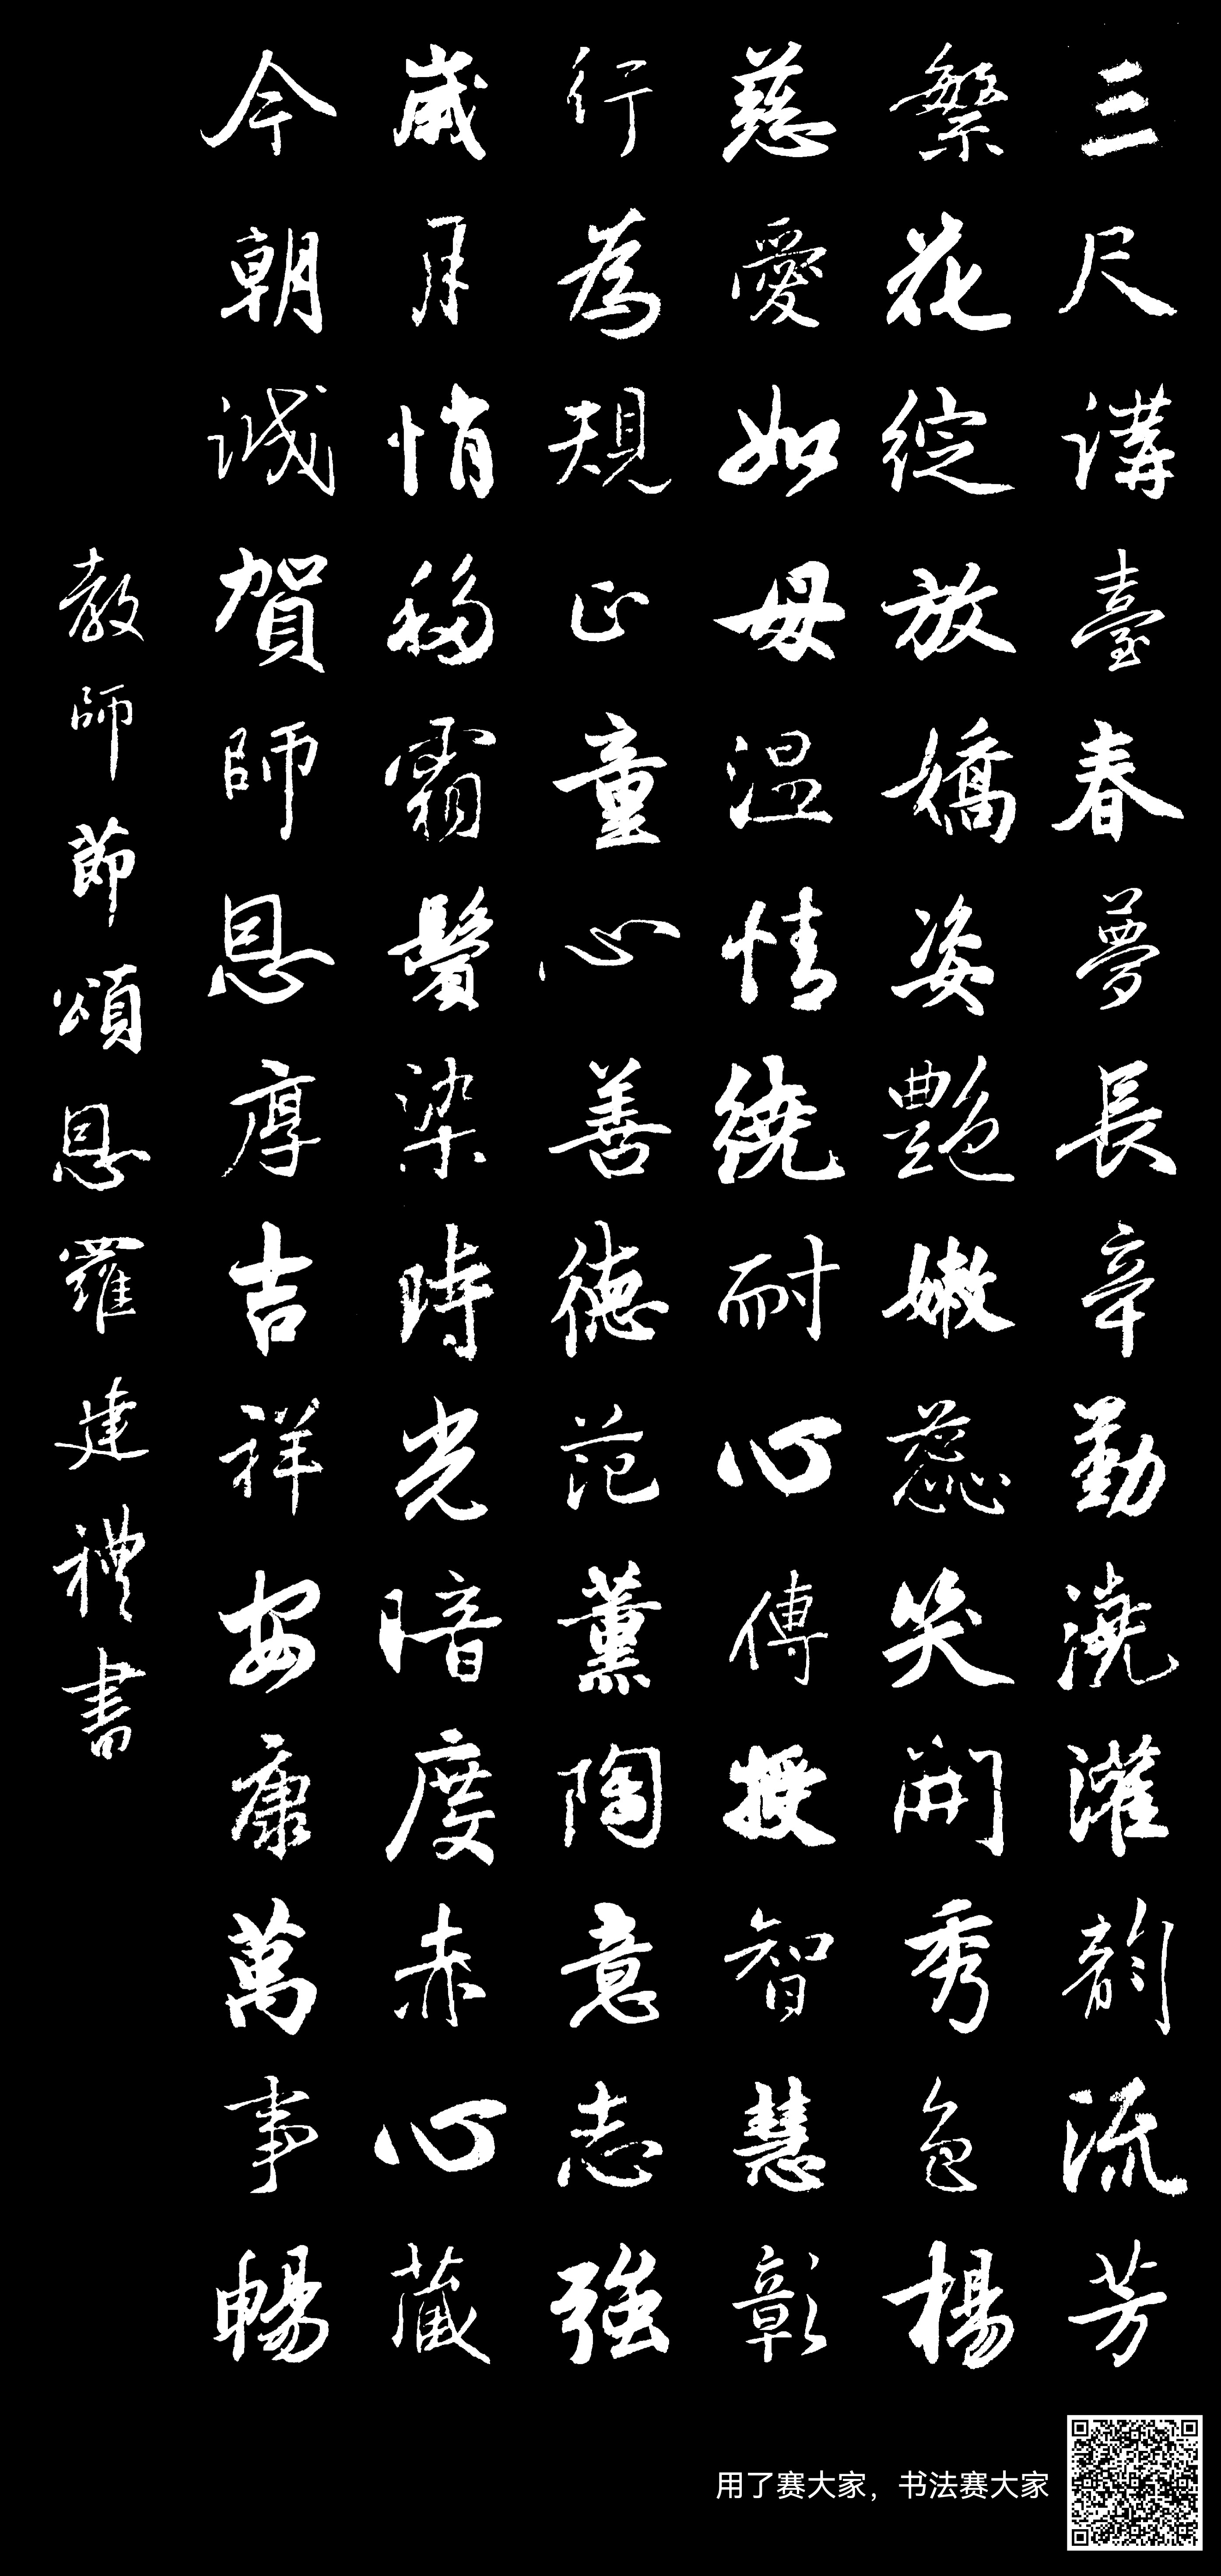 三尺講臺春夢長辛勤澆灌韵流芳
繁花綻放嬌姿艷嫩蕊笑開秀色楊
慈愛如母温情繞耐心傳授智慧彰
行為規正童心善德范薰陶意志強
歲月悄移霜鬢染時光暗度赤心藏
今朝誠賀師恩厚吉祥安康萬事暢
教師節頌恩羅建禮書
用了赛大家，书法赛大家